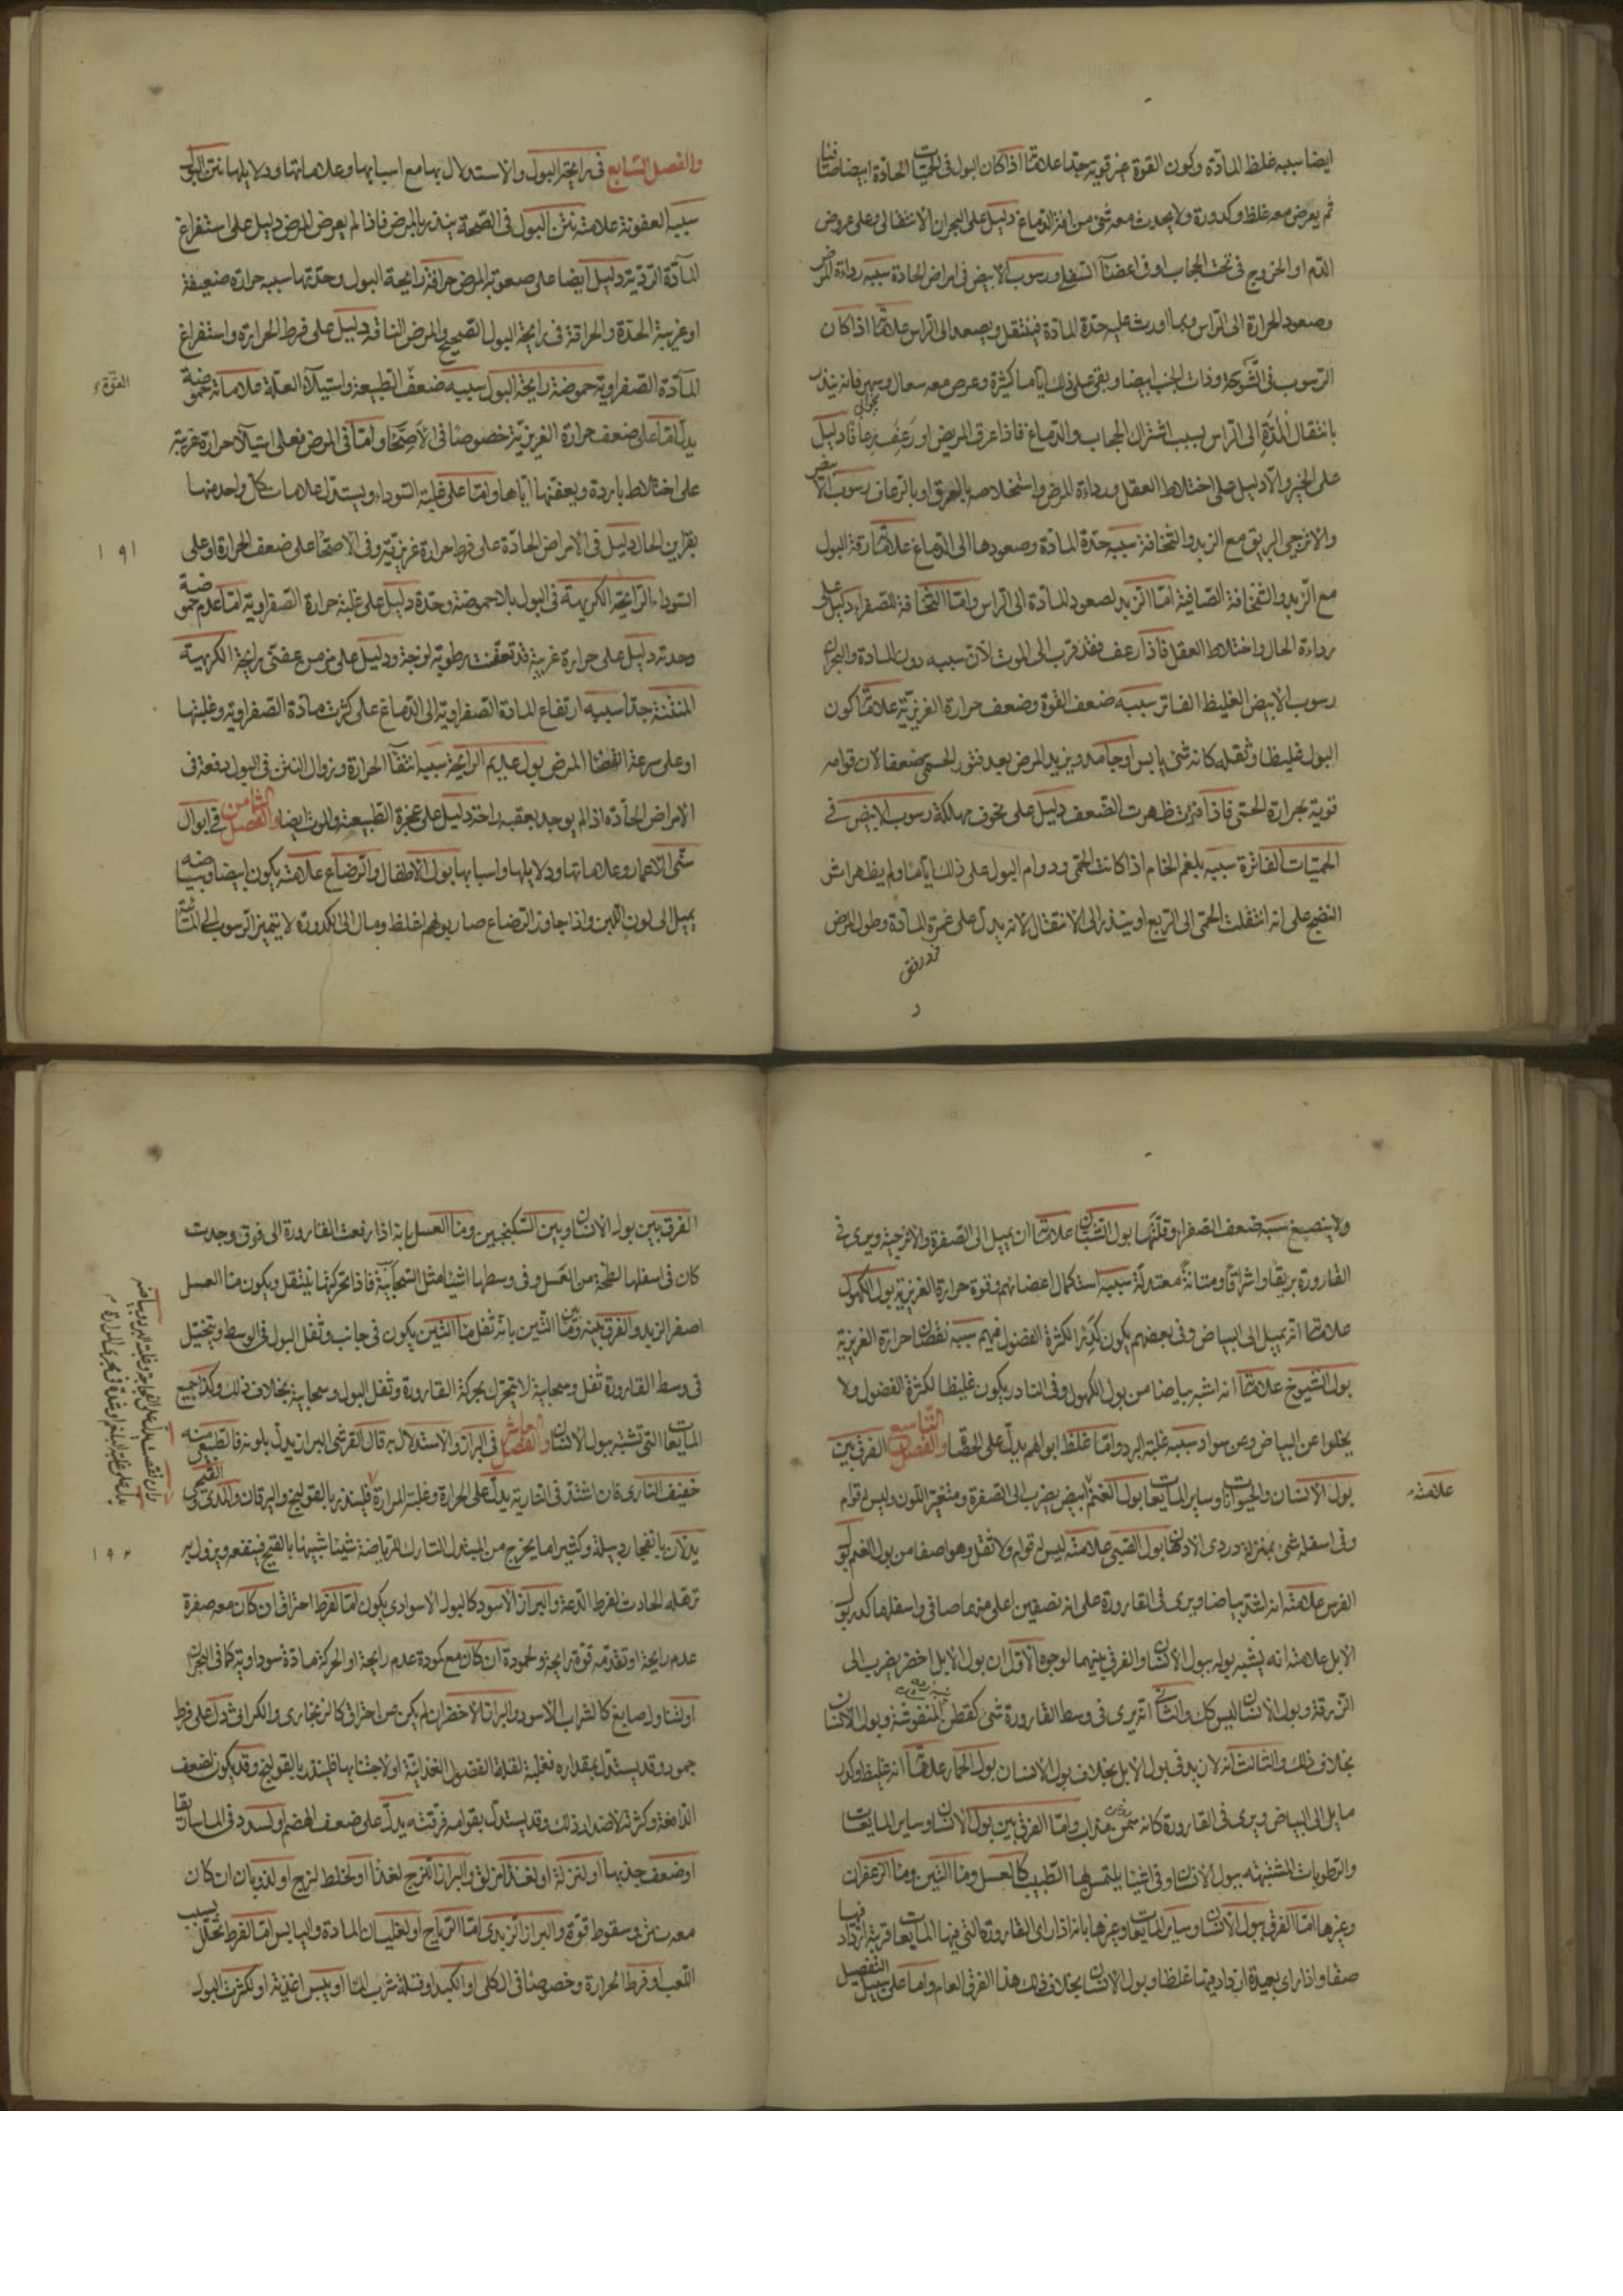 ايضا سببه غلظ المادة وكون القوة غير قوية جدا علامتها اذا كان البول فى الحميات الحادة ابيضا صافيا
ثم يعرض معه غلظ وكدورة ولا يحدث معه شئ من افة الدماغ دليل على البحران الانتقالى وعلى عروض
الدم او الخروج فى تحت الحجاب او فى اعضآ السفلى ورسوب الابيض فى امراض الحادة سببه رداءة المرض
وصعود الحرارة الى الراس وبما اورث عليه حدة المادة فينتقل ويصعد الى الراس علامتها اذا كان
الرسوب فى الشوصة وذات الجنب ابيضا وبقى على ذلك اياما كثيرة وعرض معه سعال وسهر فانه ينذر
بانتقال المدة الى الراس بسبب اشتراك الحجاب والدماغ فاذا عرق المريض او رعف رعافا دليل
على الخير والا دليل على اختلاط العقل ورداءة المرض واستخلاصه بالعرق او بالرعاف رسوب الابيض
والاترجى البريق مع الزبد والسخافة سببه حدة المادة وصعودها الى الدماغ علامتها رقة البول
مع الزبد والسخافة الصافية اما الزبد لصعود المادة الى الراس واما السخافة للصفراء دليل على
رداءة الحال واختلاط العقل فاذا رعف فقد قرب الى الموت لان سببه دون المادة والبحران
رسوب الابيض الغليظ الفاتر سببه ضعف القوة وضعف حرارة الغريزية علامتها كون
البول غليظا وثقله كانه شئ يابس او جامد ويزيد المرض بعد فتور الحمى ضعفا لان قوامه
قوية بحرارة الحمى فاذا فترت ظهرت الضعف دليل على مخوف مهلكة رسوب الابيض فى
الحميات الفاترة سببه بلغم الخام اذا كانت الحمى ودوام البول على ذلك اياما ولم يظهر اثر
النضج على انه انتقلت الحمى الى الربع او ينذر الى الانتقال لانه يدل على غمرة المادة وطول المرض
والفصل السابع فى رايحة البول والاستدلال بها مع اسبابها وعلاماتها ودلايلها نتن البول
سببه العفونة علامته نتن البول فى الصحة ينذر بالمرض فاذا لم يعرض المرض دليل على استفراغ
المآدة الردية دليل ايضا على صعوبة المرض حرافة رايحة البول وحدتها سببه حرارة ضعيفة
او غريبة الحدة والحرافة فى رايحة البول الصحيح والمرض الناقه دليل على فرط الحرارة واستفراغ
المآدة الصفراوية حموضة رايحة البول سببه ضعف الطبيعة واستيلآء العلة علاماته حموضة
يدل اما على ضعف حرارة الغريزية خصوصا فى الاصحا واما فى المرض فعلى استيلآ حرارة غريبة
على اخلاط باردة ويعفنها اياها واما على غلبة السوداء ويستدل علامات كل واحد منها
بقراين الحال دليل فى الامراض الحادة على فرط حرارة غريزية وفى الاصحا على ضعف الحرارة او على
السوداء الرايحة الكريهة فى البول بلا حموضة وحدة دليل على غلبة حرارة الصفراوية اما عدم حموضة
وحدته دليل على حرارة غريبة قد تعفنت رطوبة لزجة ودليل على مرض عفنى رايحة الكريهية
المنتنة جدا سببه ارتفاع المادة الصفراوية الى الدماغ على كثرت مادة الصفراوية وغلبتها
او على سرعة انقضا المرض بول عديم الرايحة سببه انتفآ الحرارة وزوال النتن فى البول دفعة فى
الامراض الحادة اذا لم يوجد بعقبه راحة دليل على عجزة الطبيعة والموت ايضا والفصل الثامن فى ابوال
سنى الاعمار وعلاماتها ودلايلها واسبابها بول الاطفال والرضاع علامته يكون ابيضا وبياضه
يميل الى لون اللبن واذا جاوز الرضاع صار بولهم اغلظ ومال الى الكدورة لا يتميز الرسوب
١٩١
ولا ينصبغ سببه ضعف الصفراء وقلتها بول الشبان علامتها ان يميل الى الصفرة والاترجية ويرى فى
القارورة بريقا واشراقا ومتانة معتدلة سببه استكمال اعضائهم وقوة حرارة الغريزية بول الكهول
علامتها انه يميل الى البياض وفى بعضهم يكون كدرا لكثرة الفضول فيهم سببه نقصان حرارة الغريزية
بول الشيوخ علامتها انه اشبه بياضا من بول الكهول وفى النادر يكون غليظا لكثرة الفضول ولا
يخلوا عن البياض وعن سواد سببه غلبة البرد واما غلظ ابوالهم يدل على الحصا والفصل التاسع الفرق بين
بول الانسان والحيوانات وساير المايعات بول الغنم ابيض يضرب الى الصفرة ومتغير اللون وليس له قوام
وفى اسفله شئ بمنزلة دردى الادهان بول القبى علامته ليس له قوام ولا ثقل وهو اصفا من بول الغنم بول
الفرس علامته اشد بياضا ويرى فى القارورة على انه نصفين اعلى منهما صافى واسفلها كدر بول
الابل علامته انه يشبه بوله ببول الانسان والفرق بينهما لوجوه الاول ان بول الابل اخضر يضرب الى
الزرقة وبول الانسان ليس كك والثانى انه يرى فى وسط القارورة شئ كقطن المنفوشة وبول الانسان
بخلاف ذلك والثالث انه لا زبد فى بول الابل بخلاف بول الانسان بول الحمار علامتها انه غليظ وكدر
مايل الى البياض ويرى فى القارورة كانه سمن مذاب واما الفرق بين بول الانسان وساير المايعات
والرطوبات المشتبهة ببول الانسان وفى اشيا يلتمس لها الطبيب كالعسل ومآ التين ومآ الزعفران
وغيرها اما الفرق ببول الانسان وساير المايعات وغيرها بانه اذا راى القارورة التى فيها المايعات قريبة ازداد فيها
صفا واذا راى بعيدة ازداد فيها غلظا وبول الانسان بخلاف ذلك هذا الفرق العام واما على سبيل التفصيل
علامته
الفرق بين بول الانسان وبين السكنجبين ومآ العسل بانه اذا رفعت القارورة الى فوق وجدت
كان فى اسفلها لطخة من العسل وفى وسطها اشيا مثل السحابية فاذا تحركها ينتقل ويكون مآ العسل
اصفر الزبد والفرق بينه وبين مآ التين بانه ثفل مآ التين يكون فى جانب وثفل البول فى الوسط ويتخيل
فى وسط القارورة ثفل وسحابية لا يتحرك بحركة القارورة وثفل البول وسحابية بخلاف ذلك وكذا جميع
المايعات التى تشبه ببول الانسان والفصل العاشر فى البراز والاستدلال به قال القرشى البراز يدل بلونه فالطبيعى منه
خفيف النارى فان اشتد فى النارية يدل على الحرارة وغلبة المرارة فلينذر بالقولنج واليرقان والمدى والقيحى
يدلان بانفجار دبيلة وكثيرا ما يخرج من البدن التارك للرياضة شيئا شبيها بالقيح فينتفعه ويزول به
ترهله الحادث لفرط الدعة والبراز الاسود كالبول الاسود اى يكون اما لفرط احتراق ان كان معه صفرة
عدم رايحة او تقدمه قوة رايحة ولجمودة ان كان مع كمودة عدم رايحة او لحركة مادة سوداوية كما فى البحران
او لتناول صابغ كالشراب الاسود والبراز الاخضر ان لم يكن عن احتراق كالزنجارى والكراثى دل على فرط
جمود وقد يستدل بمقداره فقلته لقلة الفضول الغذائية او لاحتباسها فلينذر بالقولنج وقد يكون لضعف
الدافعة وكثرته لاضداد ذلك وقد يستدل بقوامه فرقته يدل على ضعف الهضم او لسدد فى الماساريقا
او ضعف جذبها او لنزلة او لغذا مزلق والبراز اللزج لغذا او لخلط لزج او لذوبان ان كان
معه نتن وسقوط قوة والبراز الزبدى اما الرياح او لغليان المادة واليابس اما لفرط تحلل بسبب
التعب او فرط الحرارة وخصوصا فى الكلى او الكبد او قلة شرب المآ او يبس اغذية او لكثرت البول
١٩٢